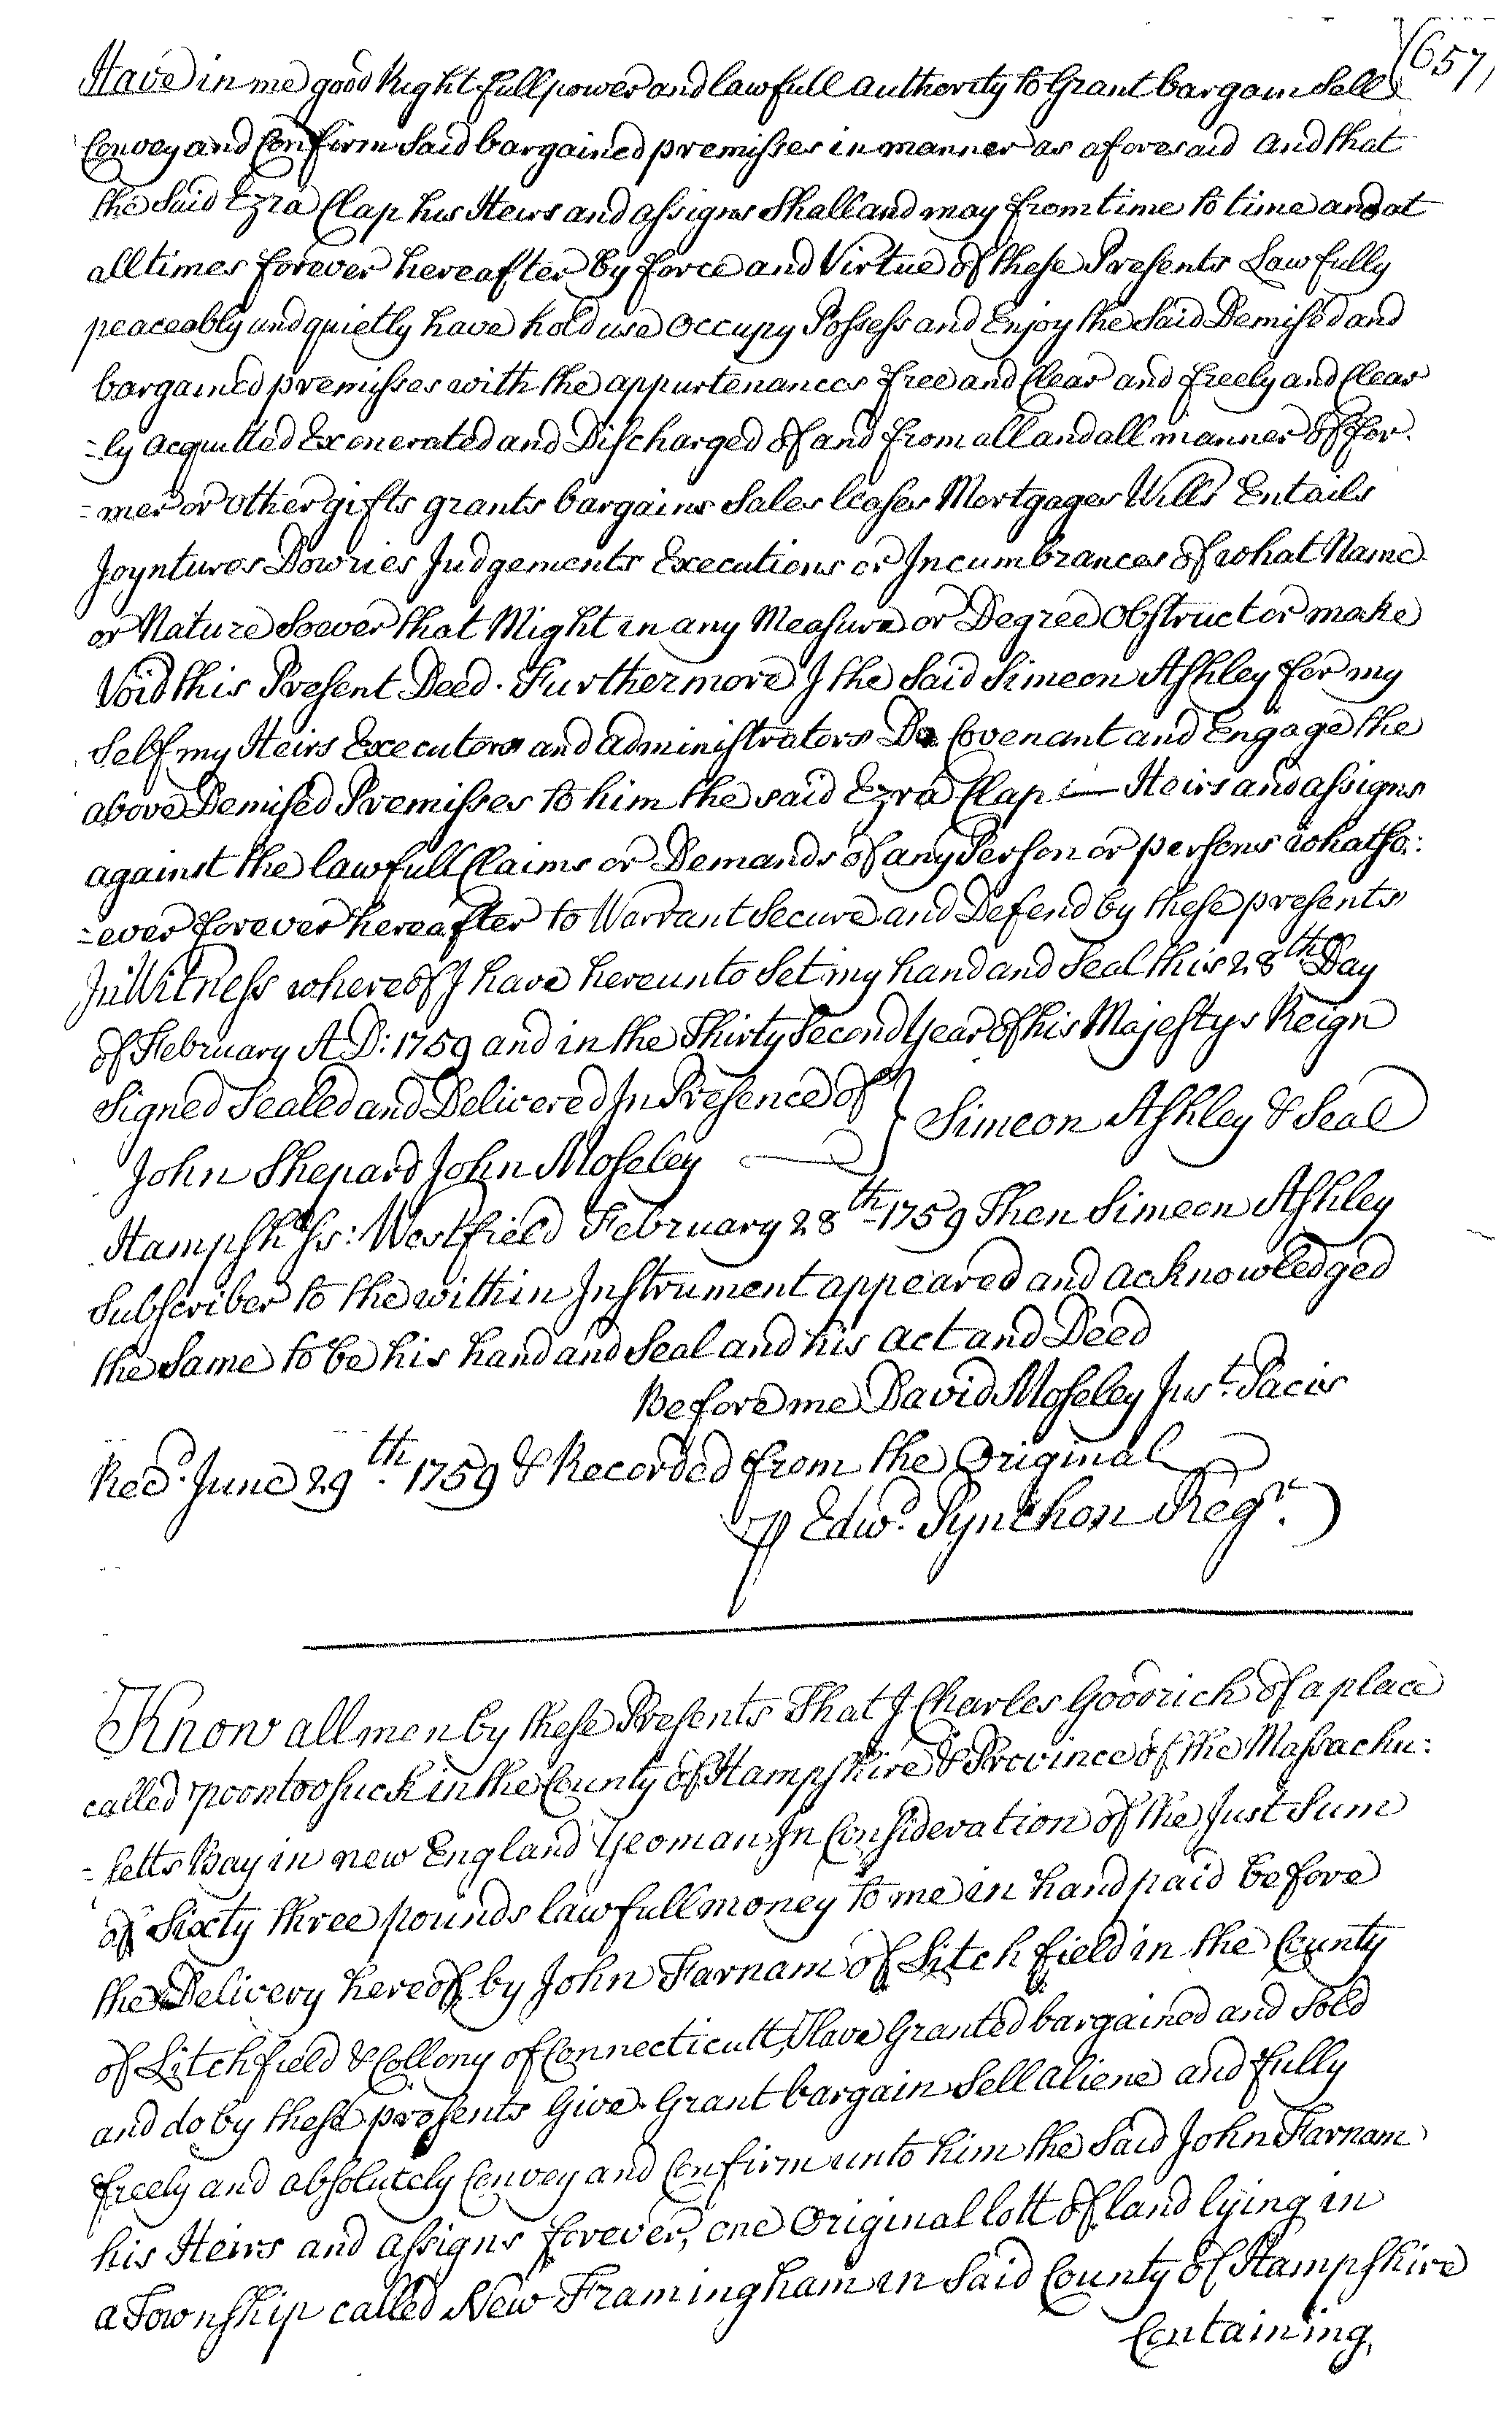 (657)
Have in me good Right full power and lawfull authority to Grant bargain Sell
Convey and Confirm Said bargained premisses in manner as aforesaid and that
the Said Ezra Clap his Heirs and assigns Shall and may from time to time and at
all times forever hereafter by force and Virtue of these Presents Lawfully
peaceably and quietly have hold use Occupy Possess and Enjoy the Said Demised and
bargained premisses with the appurtenances free and Clear and freely and Clear
=ly acquitted Exonerated and Discharged of and from all and all manner of for.
=mer or other gifts grants bargains Sales leases Mortgages Wills Entails
Joyntures Dowries Judgements Executions or Incumbrances of what Name
or Nature Soever that Might in any Measure or Degree Obstruct or make
Void this Present Deed. Furthermore I the Said Simeon Ashley for my
Self my Heirs Executors and administrators Do Covenant and Engage the
above Demised Premisses to him the said Ezra Clap — Heirs and assigns
against the lawfull Claims or Demands of any Person or persons whatso:
=ever forever hereafter to Warrant Secure and Defend by these presents
In Witness whereof I have hereunto Set my hand and Seal this 28th Day
of February A D: 1759 and in the Thirty Second Year of his Majestys Reign
Signed Sealed and Delivered In Presence of } Simeon Ashley & Seal
John Shepard John Moseley
Hampshr Ss: Westfield February 28th 1759 Then Simeon Ashley
Subscriber to the within Instrument appeared and acknowledged
the Same to be his hand and Seal and his act and Deed
Before me David Moseley Just. Pacis
Recd. June 29th. 1759 & Recorded from the Original
⅌ Edwd. Pynchon Regr.
Know all men by these Presents That I Charles Goodrich of a place
called poontoosuck in the County of Hampshire & Province of the Massachu:
=setts Bay in new England Yeoman In Consideration of the Just Sum
of Sixty three pounds lawfull money to me in hand paid before
the Delivery hereof by John Farnam of Litchfield in the County
of Litchfield & Collony of Connecticutt, Have Granted bargained and Sold
and do by these presents Give Grant bargain Sell aliene and fully
freely and absolutely Convey and Confirm unto him the Said John Farnam
his Heirs and assigns forever, one Original lott of land lying in
a Township called New Framingham in Said County of Hampshire
Containing